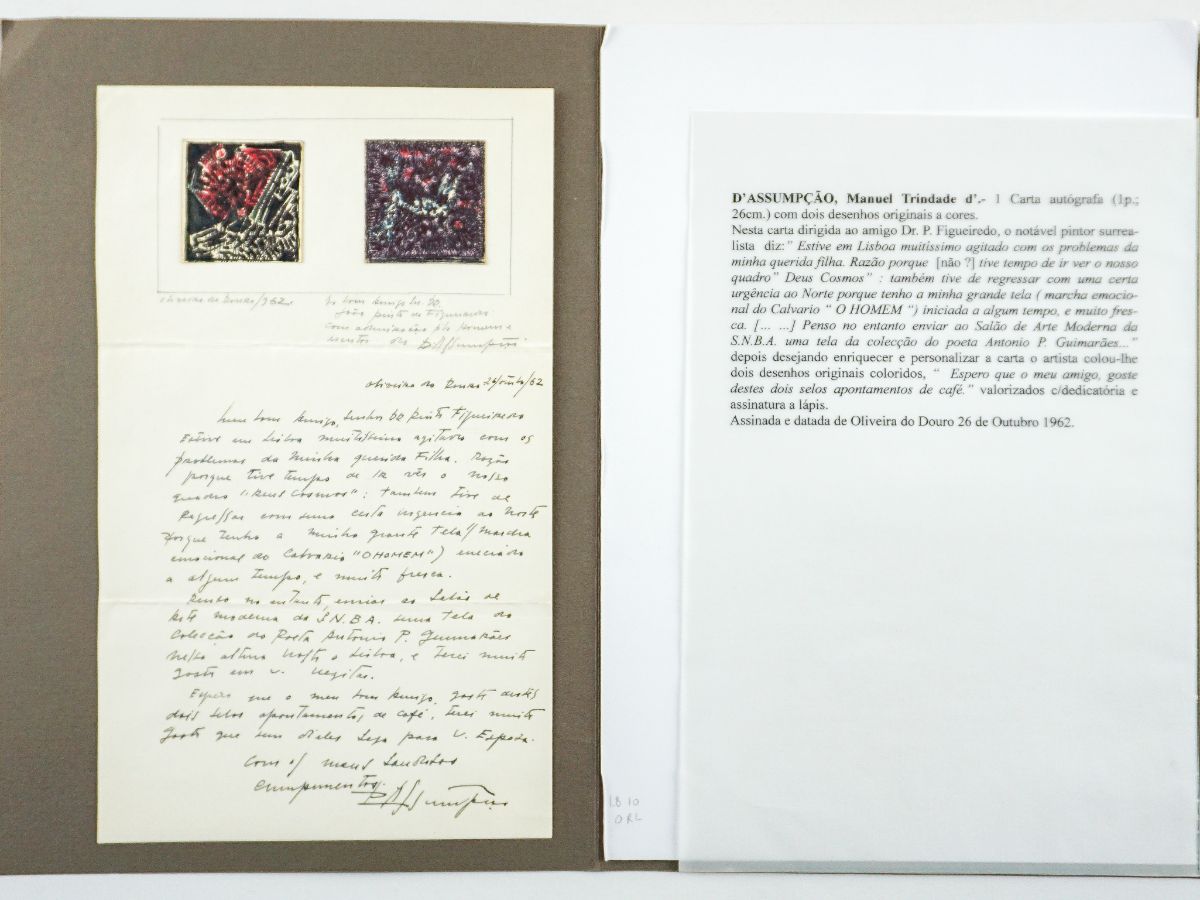 Oliveira do Douro/962
Ao bom amigo Sr. Dr.
João Pinto de Figueiredo
com admiração plo Homem e
D'Assumpção
Oliveira do Douro 26/Outb/62
Meu bom Amigo, Senhor Dr Pinto Figueiredo
Estive em Lisboa muitissimo agitado com os
problemas da minha querida Filha. Razão
porque tive tempo de ir vêr o nosso
quadro "Deus Cosmos": tambem tive de
Regressar com uma certa urgencia ao Norte
porque tenho a minha grande tela (marcha
emocional do Calvario "O HOMEM") iniciada
a algum tempo, e muito fresca.
Penso no entanto, enviar ao Salão de
Arte moderna da S.N.B.A. uma tela da
Colecção do Poeta Antonio P. Guimarães
nessa altura volto a Lisboa, e terei muito
gosto em V.
Espero que o meu bom Amigo, goste destes
dois selos apontamentos de café, terei muito
gosto que um dêles seja para V. Esposa.
Com os meus
cumprimentos.
D'Assumpção
D'ASSUMPÇÃO, Manuel Trindade d'.- 1 Carta autógrafa (1p.;
26cm.) com dois desenhos originais a cores.
Nesta carta dirigida ao amigo Dr. P. Figueiredo, o notável pintor surrea-
lista diz:" Estive em Lisboa muitissimo agitado com os problemas da
minha querida filha. Razão porque [não ?] tive tempo de ir ver o nosso
quadro" Deus Cosmos" : também tive de regressar com uma certa
urgência ao Norte porque tenho a minha grande tela ( marcha emocio-
nal do Calvario " O HOMEM ") iniciada a algum tempo, e muito fres-
ca. [... ...] Penso no entanto enviar ao Salão de Arte Moderna da
S.N.B.A. uma tela da colecção do poeta Antonio P. Guimarães..."
depois desejando enriquecer e personalizar a carta o artista colou-lhe
dois desenhos originais coloridos, " Espero que o meu amigo, goste
destes dois selos apontamentos de café." valorizados c/dedicatória e
assinatura a lápis.
Assinada e datada de Oliveira do Douro 26 de Outubro 1962.
ORL